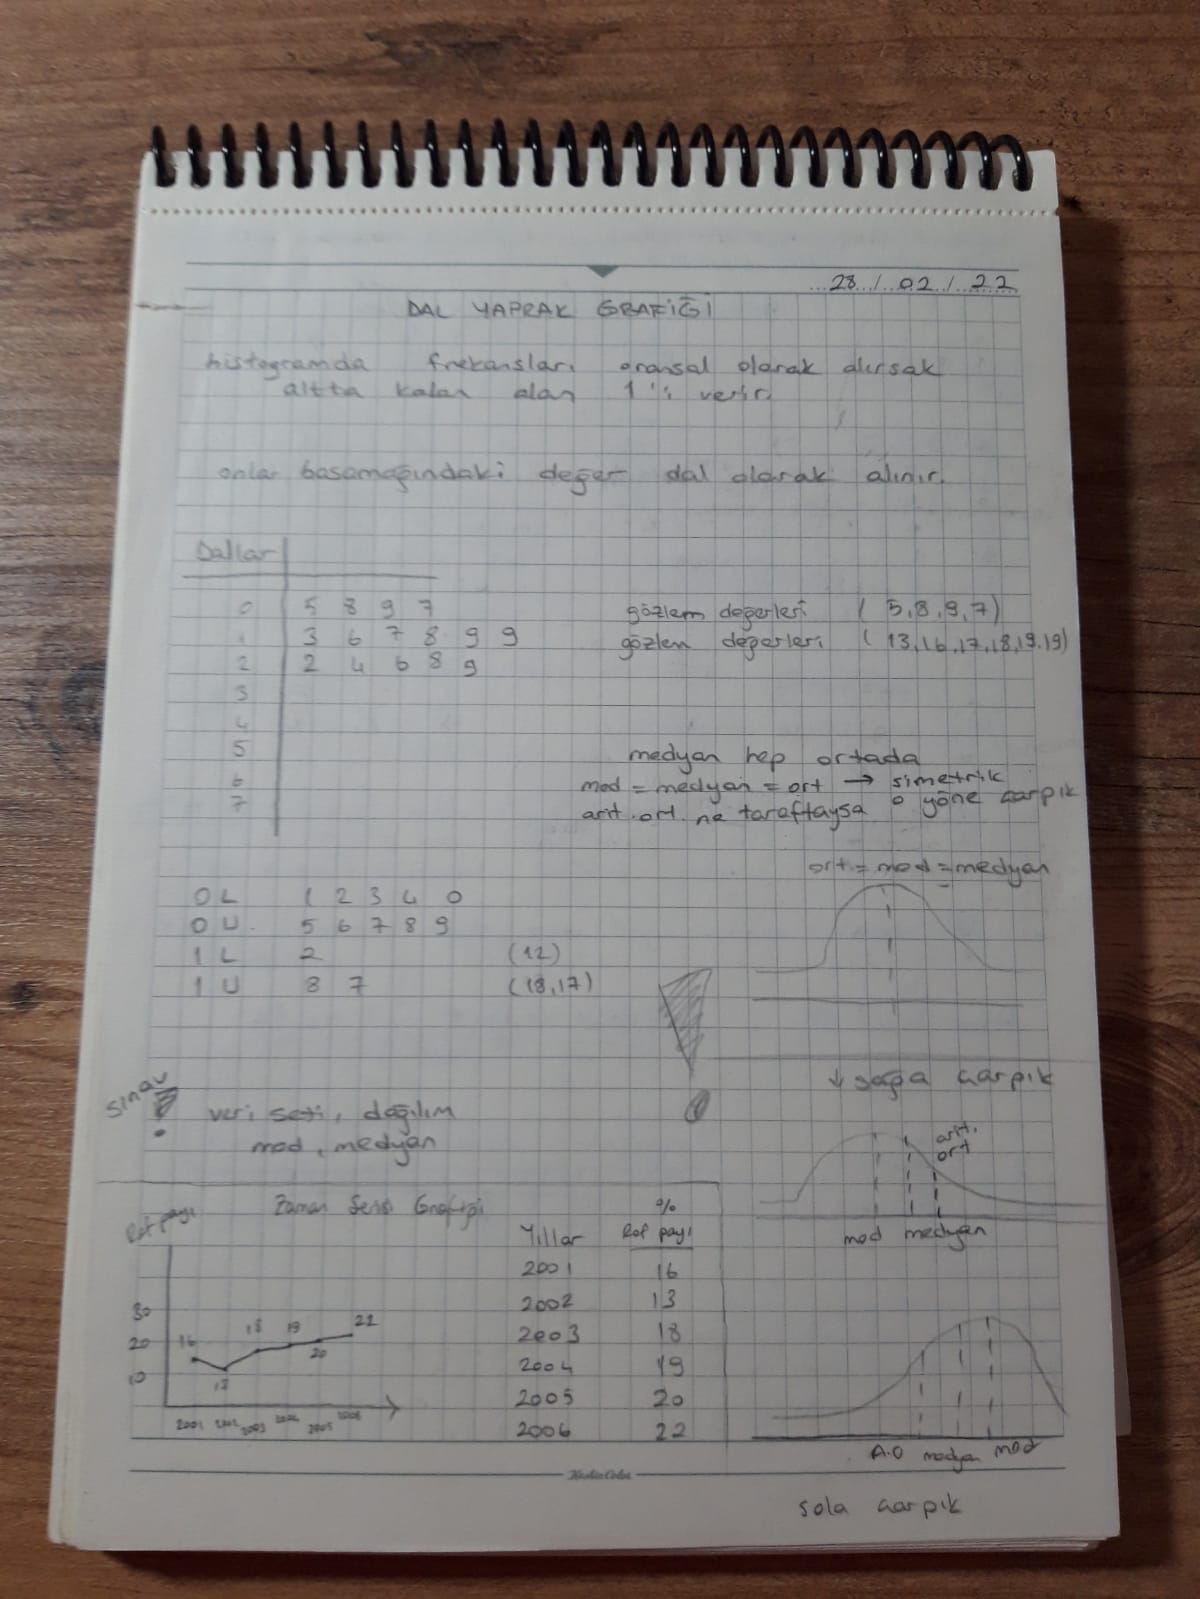 28 / 02 / 22
DAL YAPRAK GRAFİĞİ
histogramda frekansları oransal olarak alırsak
altta kalan alan 1'i verir.
onlar basamağındaki değer dal olarak alınır.
Dallar
0 5 8 9 7 gözlem değerleri ( 5,8,9,7)
1 3 6 7 8 9 9 gözlem değerleri ( 13,16,17,18,19.19)
2 2 4 6 8 9
3
4
5
6
7
medyan hep ortada
mod = medyan = ort → simetrik
arit.ort. ne taraftaysa o yöne çarpık
ort = mod = medyan
0 L 1 2 3 4 0
0 U. 5 6 7 8 9
1 L 2 (12)
1 U 8 7 (18,17)
↓ sağa çarpık
arit.
ort
mod medyan
sınav
! veri seti, dağılım
mod, medyan
Zaman Serisi Grafiği
Raf payı
30
20
10
16
13
18
19
20
22
2001 2002 2003 2004 2005 2006
%
Yıllar Raf payı
2001 16
2002 13
2003 18
2004 19
2005 20
2006 22
A.O medyan mod
sola çarpık